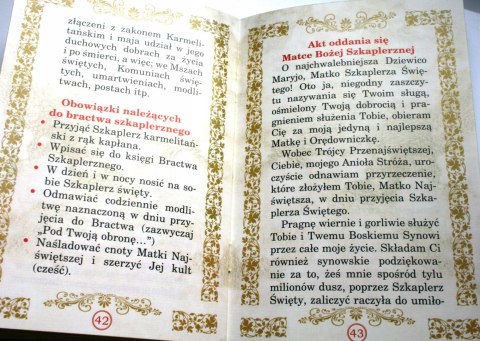 złączeni z zakonem Karmeli-
tańskim i maja udział w jego
duchowych dobrach za życia
i po śmierci, a więc; we Mszach
świętych, Komuniach świę-
tych, umartwieniach, modli-
twach, postach itp.
Obowiązki należących
do bractwa szkaplerznego
• Przyjąć Szkaplerz karmelitań-
ski z rąk kapłana.
• Wpisać się do księgi Bractwa
Szkaplerznego.
• W dzień i w nocy nosić na so-
bie Szkaplerz święty.
• Odmawiać codziennie modli-
twę naznaczoną w dniu przy-
jęcia do Bractwa (zazwyczaj
„Pod Twoją obronę...”)
• Naśladować cnoty Matki Naj-
świętszej i szerzyć Jej kult
(cześć).
42
Akt oddania się
Matce Bożej Szkaplerznej
O najchwalebniejsza Dziewico
Maryjo, Matko Szkaplerza Świę-
tego! Oto ja, niegodny zaszczy-
tu nazywania się Twoim sługą,
ośmielony Twoją dobrocią i pra-
gnieniem służenia Tobie, obieram
Cię za moją jedyną i najlepszą
Matkę i Orędowniczkę.
Wobec Trójcy Przenajświętszej,
Ciebie, mojego Anioła Stróża, uro-
czyście odnawiam przyrzeczenie,
które złożyłem Tobie, Matko Naj-
świętsza, w dniu przyjęcia Szka-
plerza Świętego.
Pragnę wiernie i gorliwie służyć
Tobie i Twemu Boskiemu Synowi
przez całe moje życie. Składam Ci
również synowskie podziękowa-
nie za to, żeś mnie spośród tylu
milionów dusz, poprzez Szkaplerz
Święty, zaliczyć raczyła do umiło-
43